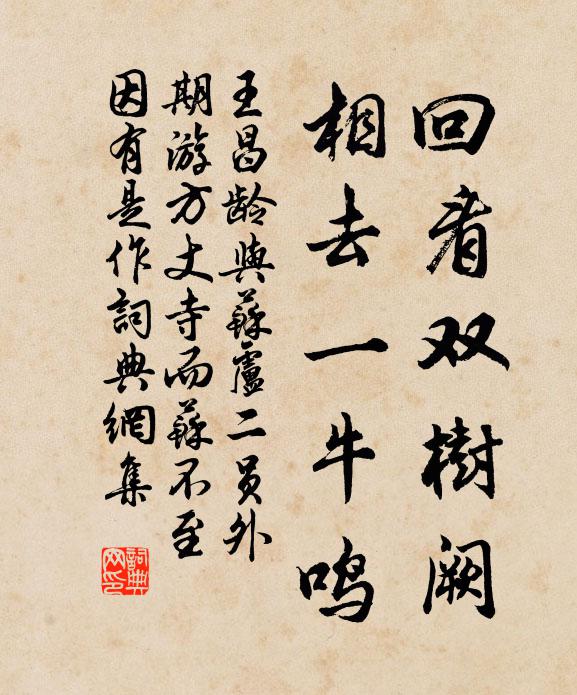 回看双樹阙
相去一牛鸣
王昌龄與蘇盧二员外
期游方丈寺而蘇不至
因有是作詞典網集
詞典
网印